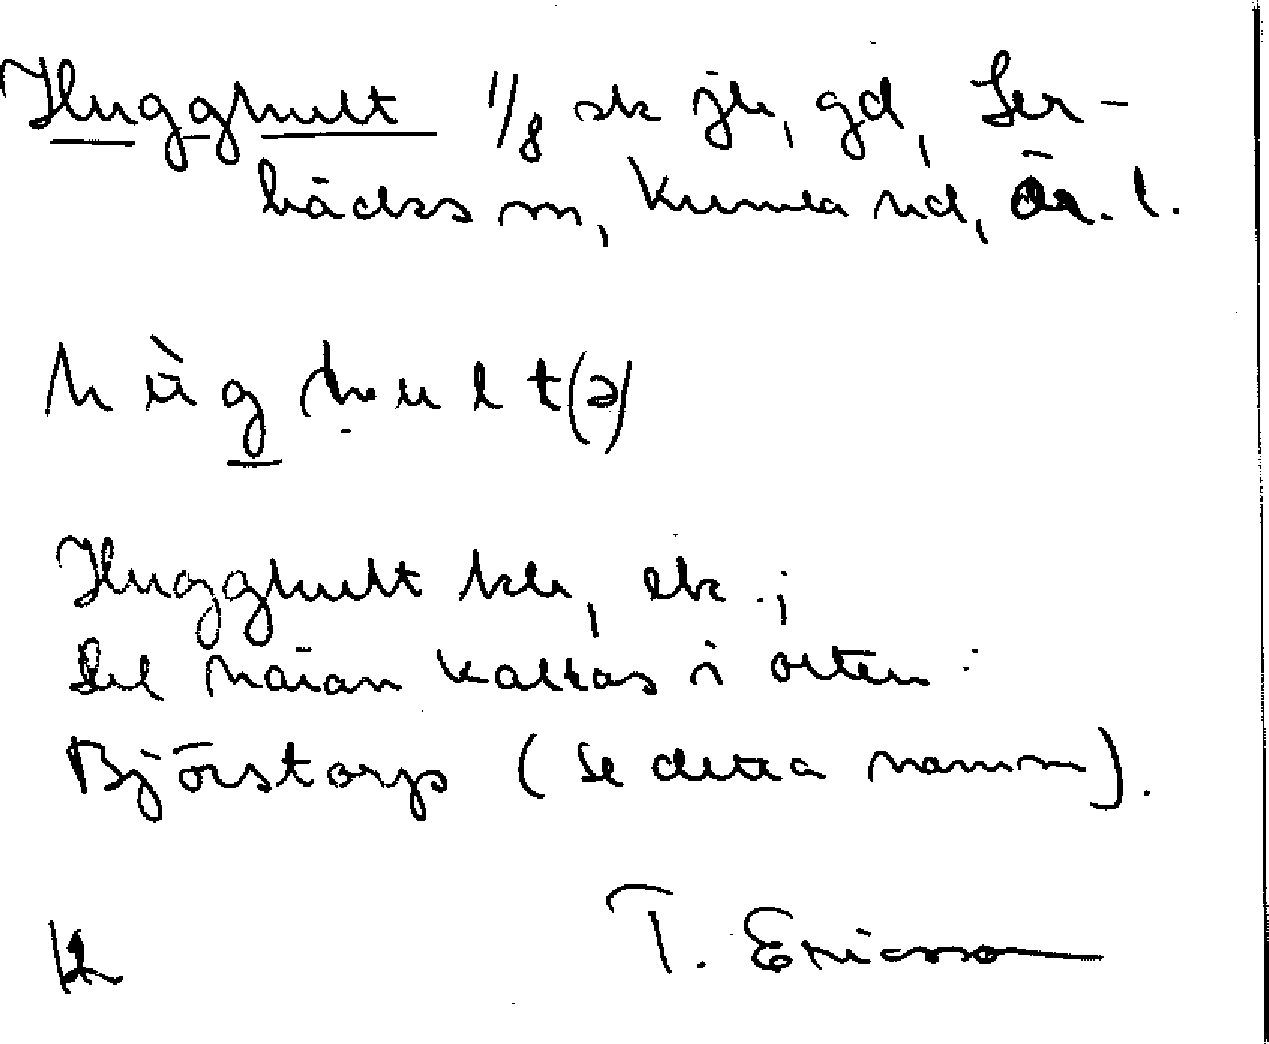 Hugghult 1/8 sk jb, gd, Ler-
bäcks sn, Kumla hd, Ör. l.
hùg hult(ə)
Hugghult kb, ek.;
Del häran kallas i orten
Björstorp (se detta namn).
T. Ericsson